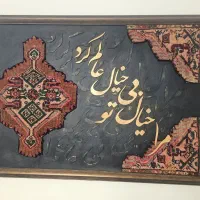 مرا خیال تو
بی خیال
عالم کرد